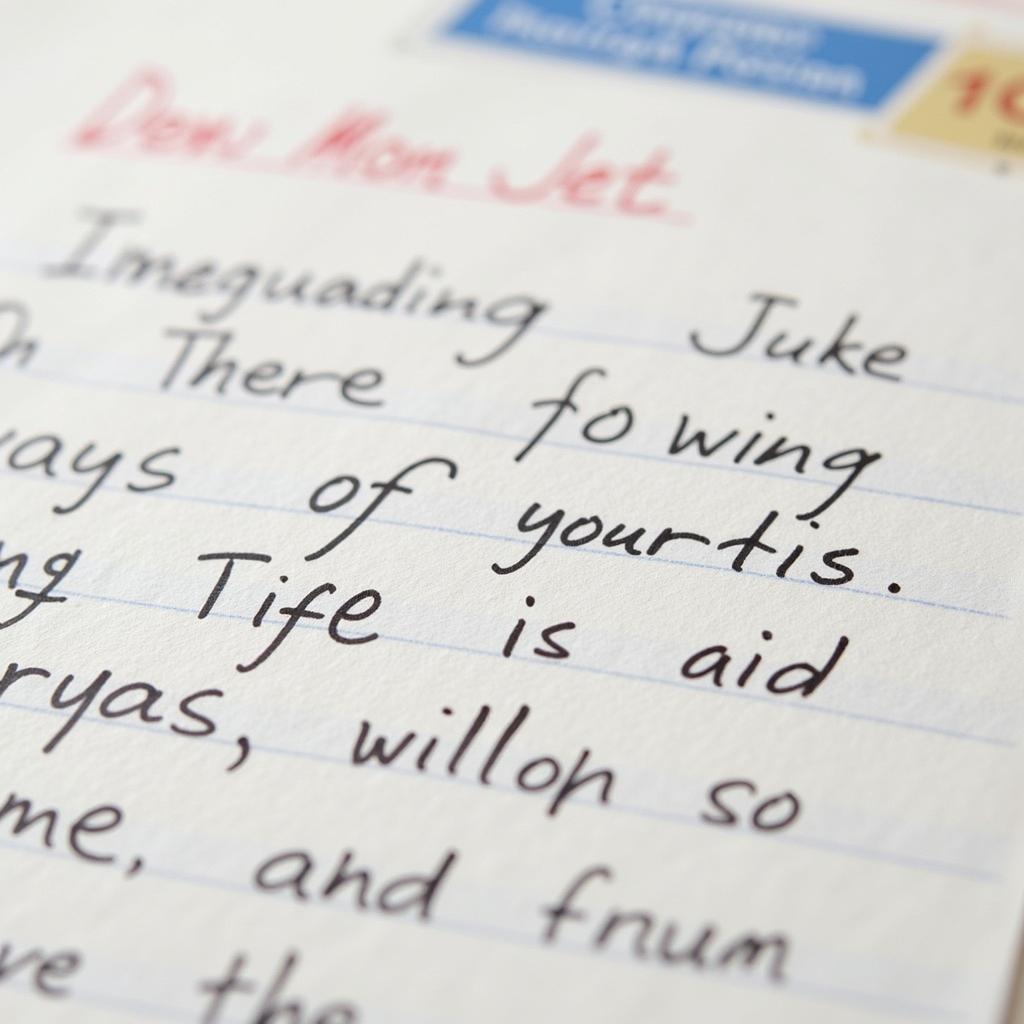 Dew Mom Jet
Imeguading Juke
On There fo wing
ways of yourtis.
ng Tife is aid
ryas, willon so
me, and fnum
ve the
10